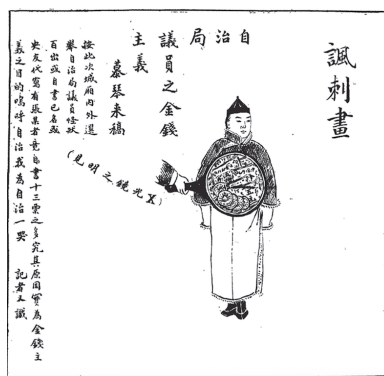 諷刺畫
自治局
議員之金錢
主義
慕琴来稿
(X光鏡之明見)
按此次城廂內外選
舉自治局議員怪狀
百出或自書己名或
央友代寫有張某者竟自書十三票之多究其原因實為金錢主
義之目的嗚呼自治我為自治一哭 記者又識